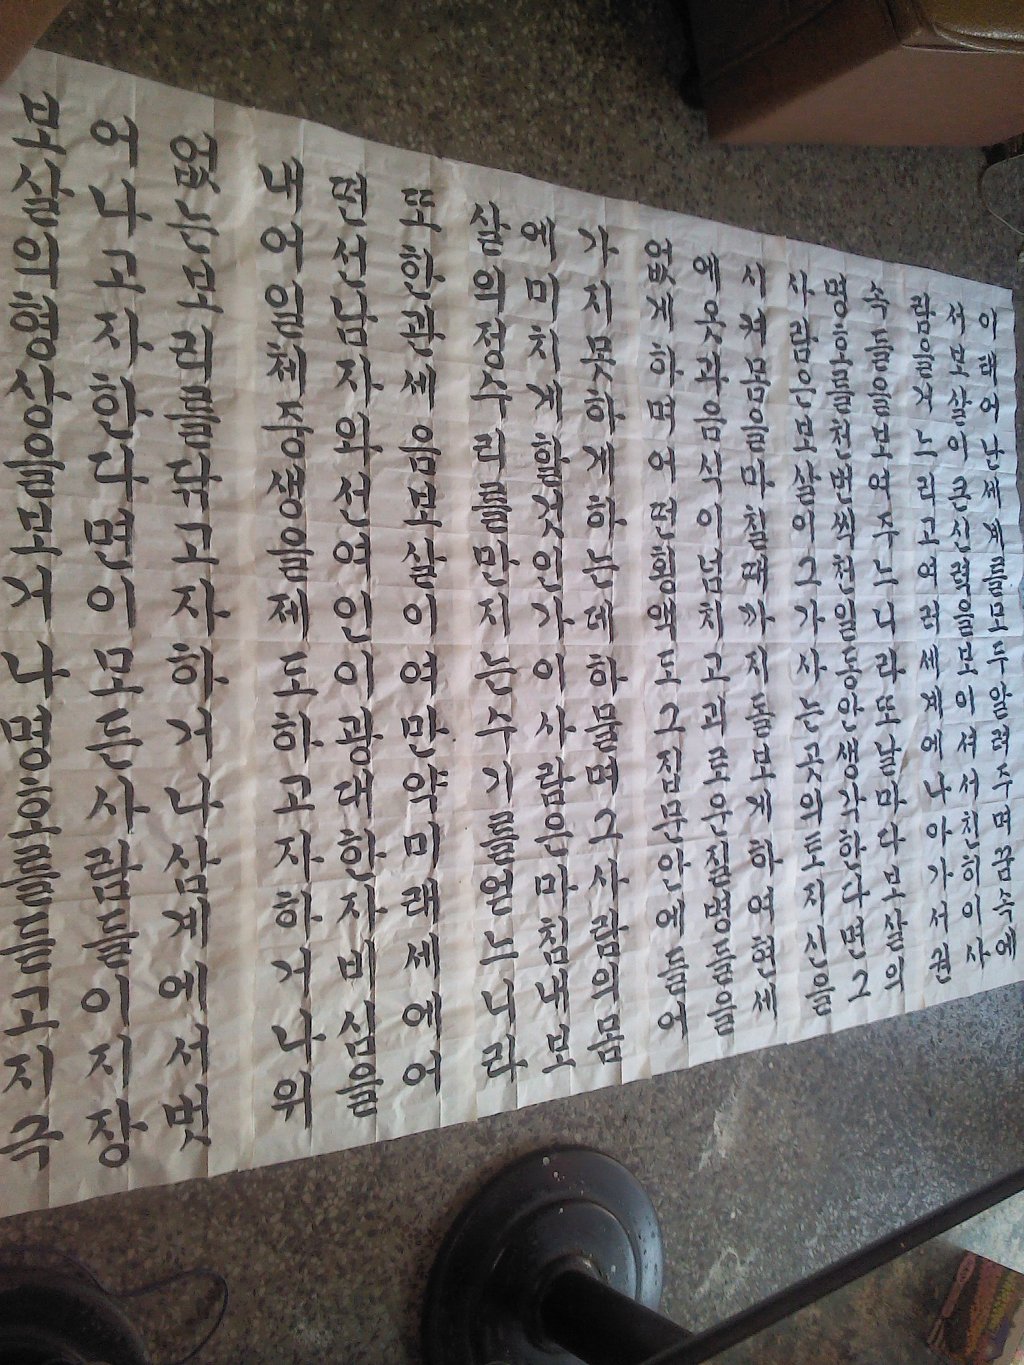 이태어난세계를모두알려주며꿈속에
서보살이큰신력을보이셔서친히이사
람을거느리고여러세계에나아가서권
속들을보여주느니라또날마다보살의
명호를천번씩천일동안생각한다면그
사람은보살이그가사는곳의토지신을
시켜몸을마칠때까지돌보게하여현세
에옷과음식이넘치고괴로운질병들을
없게하며어떤횡액도그집문안에들어
가지못하게하는데하물며그사람의몸
에미치게할것인가이사람은마침내보
살의정수리를만지는수기를얻느니라
또한관세음보살이여만약미래세에어
떤선남자와선여인이광대한자비심을
내어일체중생을제도하고자하거나위
없는보리를닦고자하거나삼계에서벗
어나고자한다면이모든사람들이지장
보살의형상을보거나명호를듣고지극